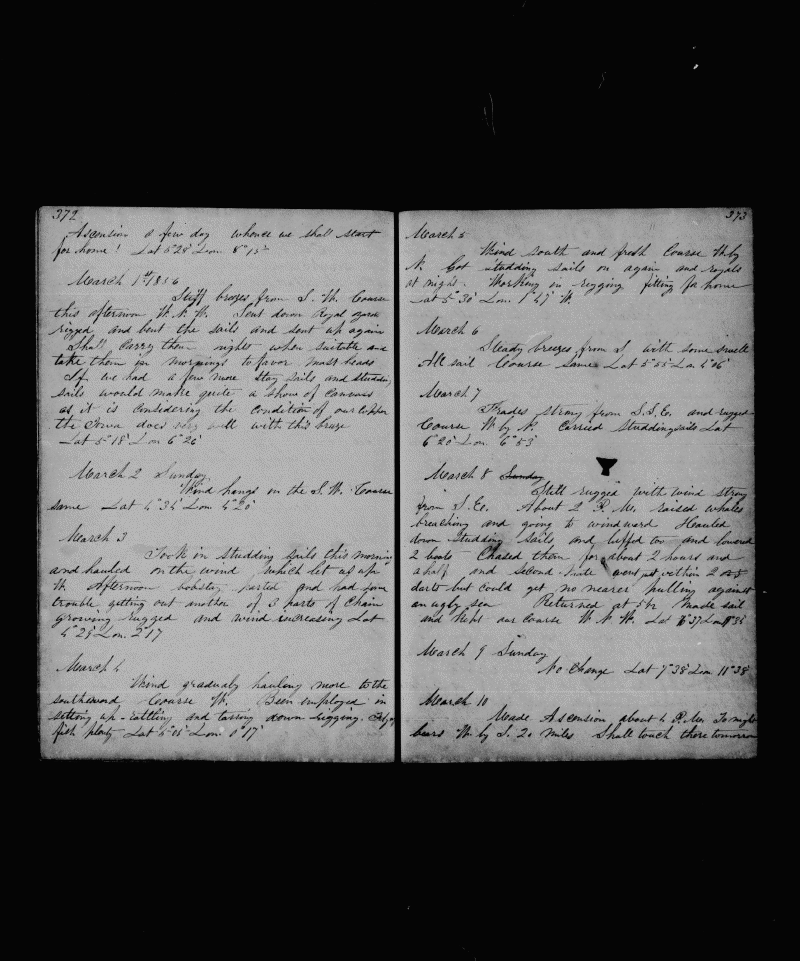 372
Ascension a few day whence we shall start
for home! Lat 5°28' Lon 8°15'
March 1st 1856
Stiff brezes from S. W. Course
this afternoon W. N. W. Sent down Royal yards
rigged and bent the sails and sent up again
Shall carry them nights when suitable and
take them in mornings to favor mast heads
If we had a few more stay sails and studding
sails would make quite a show of canvass
as it is considering the condition of our
the Iowa does very well with this breze
Lat 5°18' Lon 6°26'
March 2 Sunday
Wind hangs on the S. W. Course
same Lat 4°34' Lon 4°20'
March 3
Took in studding sails this morning
and hauled on the wind which let us up
W. Afternoon bobstay parted and had some
trouble getting out another of 3 parts of Chain
growing rugged and wind increasing Lat
4°29' Lon. 2°17'
March 4
Wind gradualy hauling more to the
southward Course W. Been employed in
setting up - rattling and tarring down rigging.
fish plenty Lat 5°05' Lon 0°17'
373
March 5
Wind south and fresh Course W. by
N. Got studding sails on again and royals
at night. Working on rigging fitting for home
Lat 5°30' Lon. 1°47' W.
March 6
Steady brezes from S. with some swell
All sail Course same Lat 5°55' Lon 4°06'
March 7
Trades strong from S.S.E. and rugged
Course W. by N. Carried studdingsails Lat
6°20' Lon. 6°53'
March 8 Sunday
Still rugged with wind strong
from S. E. About 2 P. M. raised whales
breaching and going to windward Hauled
down studding sails, and luffed too and lowered
2 boats Chased them for about 2 hours and
a half and second mate went within 2 or 3
darts but could get no nearer pulling against
an ugly sea Returned at 5h made sail
and kept our course W. N. W. Lat 37' Lon
March 9 Sunday
No Change Lat 7°38' Lon. 11°38'
March 10
Made Ascension about 4 P. M. To night
bears W. by S. 20 miles Shall touch there tomorrow